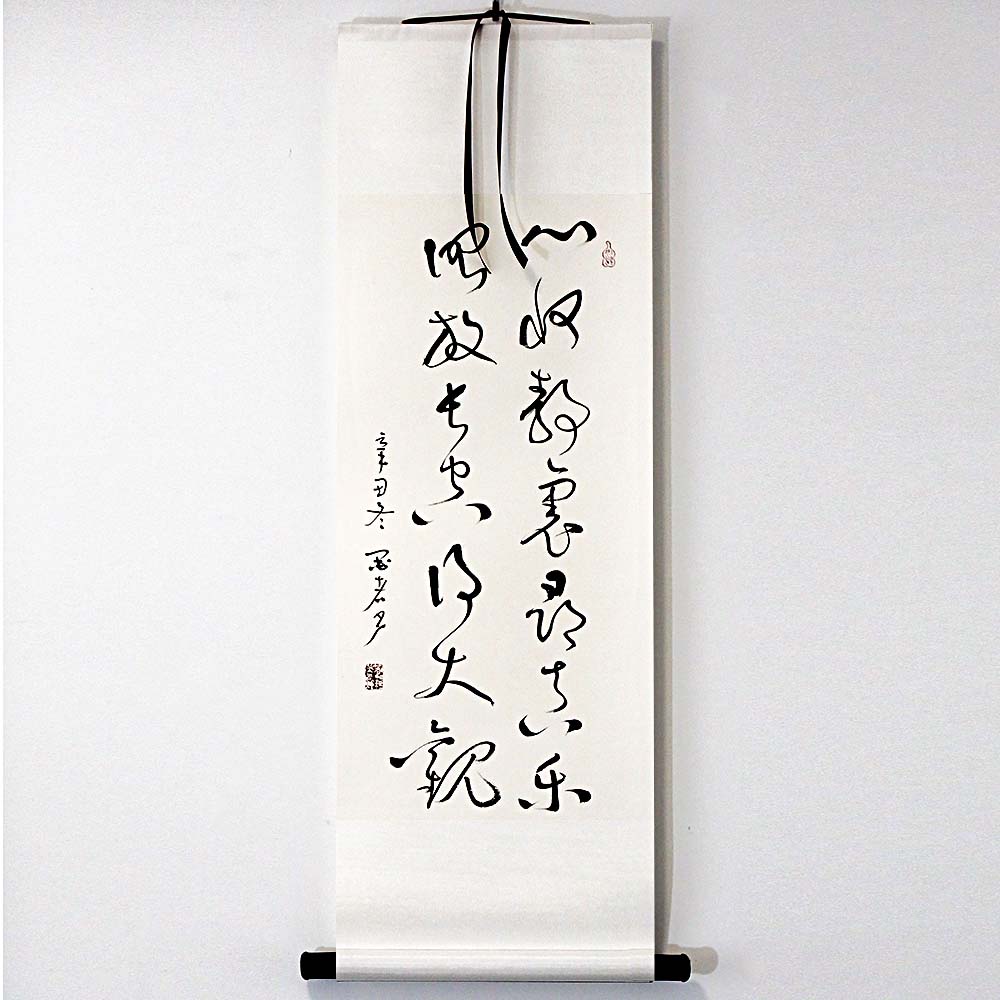 心收静里寻真乐
眼放长空得大观
辛丑冬